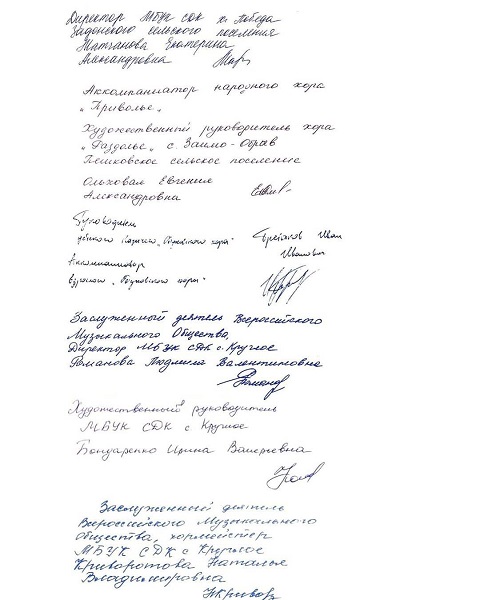 Директор МБУК СДК х. Победа
Задонского сельского поселения
Екатерина
Александровна
Аккомпаниатор народного хора
"Приволье"
Художественный руководитель хора
"Раздолье" с. Займо-Обрыв
Пешковское сельское поселение
Ольховая Евгения
Александровна
Руководитель
хора"
Иван
Иванович
Аккомпаниатор
хора"
Заслуженный деятель Всероссийского
Музыкального Общества,
Директор МБУК СДК с. Круглое
Романова Людмила Валентиновна
Художественный руководитель
МБУК СДК с Круглое
Бондаренко Ирина Валерьевна
Заслуженный деятель
Всероссийского Музыкального
общества, хормейстер
МБУК СДК с Круглое
Криворотова Наталья
Владимировна